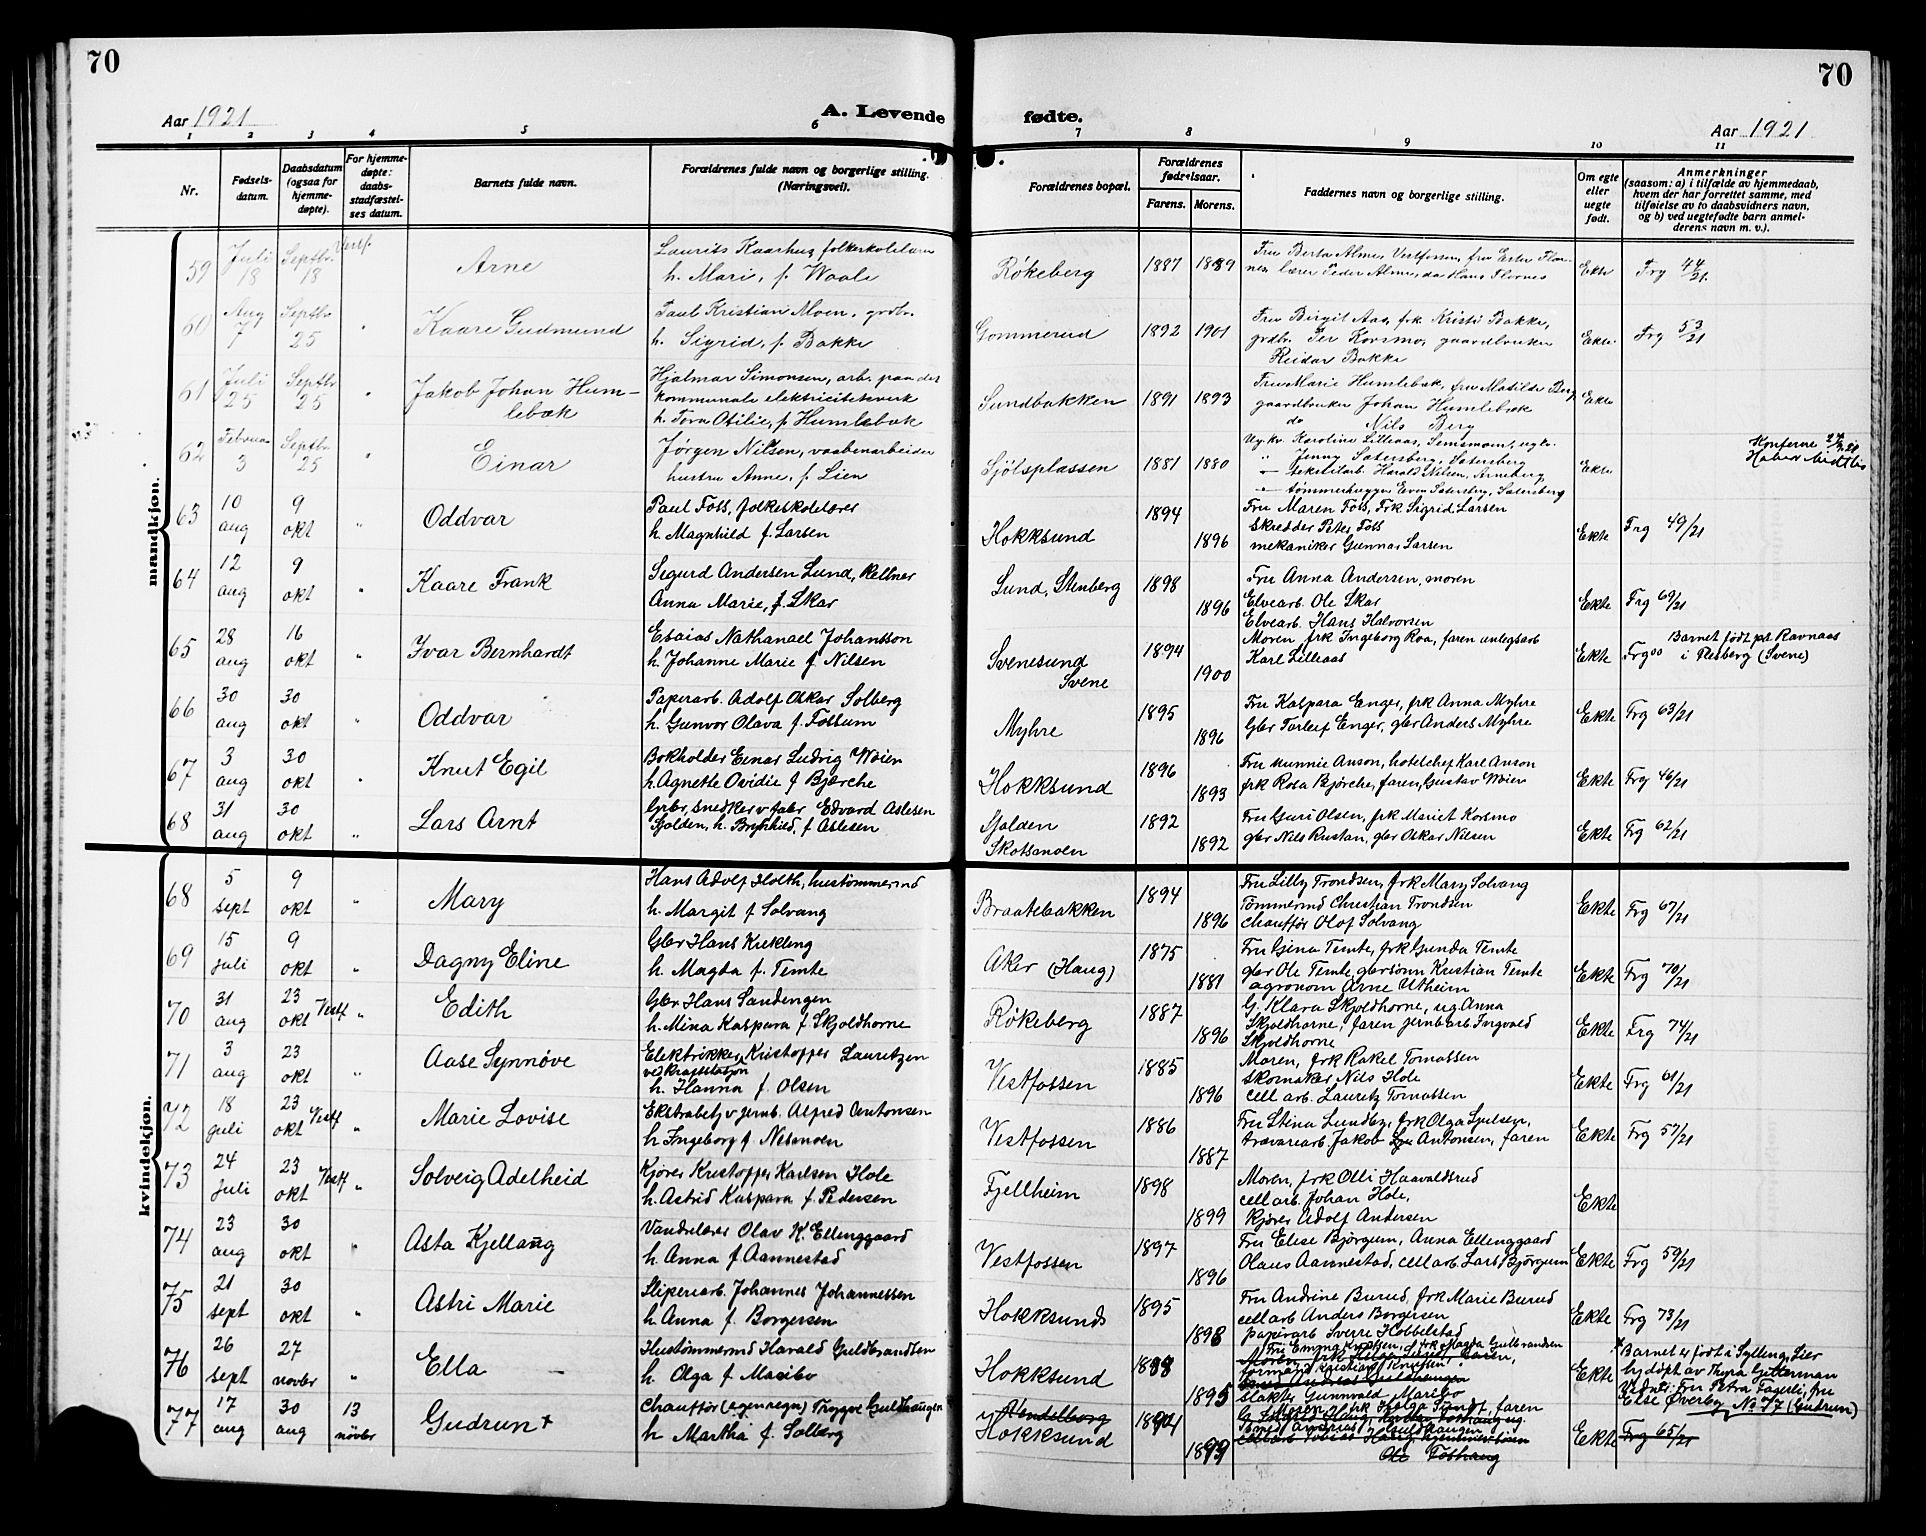 70
70
Aar 1921
A. Levende
fødte.
Aar 1921
1 2 3 4 5 6 7 8 9 10 11
Nr.
Fødsels-
datum.
Daabsdatum
(ogsaa for
hjemme-
døpte).
For hjemme-
døpte:
daabs-
stadfæstel-
ses datum.
Barnets fulde navn.
Forældrenes fulde navn og borgerlige stilling.
(Næringsvei).
Forældrenes bopæl.
Forældrenes
fødselsaar.
Farens. Morens.
Faddernes navn og borgerlige stilling.
Om egte
eller
uegte
født.
Anmerkninger
(saasom: a) i tilfælde av hjemmedaab,
hvem der har forrettet samme, med
tilføielse av to daabsvidners navn,
og b) ved uegtefødte barn anmel-
derens navn m. v.).
mandkjøn.
59 Juli 18 Septbr. 18 Vestf. Arne
Laurits Kaarhus, folkeskolelærer
h. Mari, f. Waale
Røkeberg 1887 1889
Fru Berta Alme, Vestfossen, fru Ester Flor-
nes, lærer Peder Alme, do Hans Flornes
Ekte Frg 44/21
60 Aug 7 Septbr 25 " Kaare Gudmund
Paul Kristian Moen, grdbr.
h. Sigrid, f. Bakke
Gommerud 1892 1901
Fru Birgit Aas, frk Kristi Bakke,
grdbr. Per Korsmo, gaardbruker
Reidar Bakke
Ekte Frg 53/21
61 Juli 25 Septbr 25 " Jakob Johan Hum-
lebæk
Hjalmar Simonsen, arb. paa det
kommunale elektricitetsverk
h. Tora Otilie, f. Humlebæk
Sundbakken 1891 1893
Fru Marie Humlebæk, fru Matilde Berg
gaardbruker Johan Humlebæk
do Nils Berg
Ekte
62 Februar 3 Septbr 25 " Einar
Jørgen Nilsen, vaabenarbeider
hustru Anne, f. Lien
Sjølsplassen 1881 1880
Ug.kv. Karoline Lilleaas, Semsmoen, ugkv.
" Jenny Satersberg, Satersberg
Harald Nilsen, Arneberg
tømmerhugger Even Satersberg, Satersberg
Ekte
63 10 aug 9 okt " Oddvar
Paul Foss, folkeskolelærer
h. Magnhild f. Larsen
Hokksund 1894 1896
Fru Maren Foss, Frk Sigrid Larsen
Skredder Peter Foss
mekaniker Gunnar Larsen
Ekte Frg 49/21
64 12 aug 9 okt " Kaare Frank
Sigurd Andersen Lund, Kellner
Anna Marie, f. Skar
Lund, Stenberg 1898 1896
Fru Anna Andersen, moren
Elvearb. Ole Skar
Elvearb. Hans Halvorsen
Ekte Frg 69/21
65 28 aug 16 okt " Ivar Bernhardt
Esaias Nathanael Johansson
h. Johanne Marie f Nilsen
Svenesund
Svene 1894 1900
Moren, frk Ingeborg Roa, faren anlegsarb
Karl Lilleaas
Ekte Frg 00 Barnet født pt. Ravnaas
i Flesberg (Svene)
66 30 aug 30 okt " Oddvar
Papirarb. Adolf Oskar Solberg
h. Gunvor Olava f. Fossum
Myhre 1895 1896
Fru Kaspara Enger, frk Anna Myhre
Gbr Torleif Enger, gbr Anders Myhre
Ekte Frg 63/21
67 3 aug 30 okt " Knut Egil
Bokholder Einar Ludvig Woien
h. Agnette Ovidie f Bjerche
Hokksund 1896 1893
Fru Minnie Anson, hotelchef Karl Anson
frk Rosa Bjørche, faren, Gustav Woien
Ekte Frg 46/21
68 31 aug 30 okt " Lars Arnt
Gbr, snedker v fabr Edvard Aslesen
Sjolden, h. Brynhild, f Aslesen
Sjolden
Skotsmoen 1892 1892
Fru Guri Olsen, frk Mariet Korsmo
gbr Nils Rustan, gbr Oskar Nilsen
Ekte Frg 62/21
kvindekjøn.
68 5 sept 9 okt " Mary
Hans Adolf Holth, hustømmermd
h. Margit f Solvang
Braatebakken 1894 1896
Fru Lilly Trondsen, frk Mary Solvang
Tømmermd Christian Trondsen
Chauffør Olof Solvang
Ekte Frg 67/21
69 15 juli 9 okt " Dagny Eline
Gbr Hans Kiekling
h. Magda f. Temte
Aker (Haug) 1875 1881
Fru Gina Temte, frk Gunda Temte
gbr Ole Temte, gbrsønn Kristian Temte
agronom Arne Utheim
Ekte Frg 70/21
70 31 aug 23 okt Vestf " Edith
Gbr Hans Sandengen
h. Mina Kaspara f Skjoldhorne
Røkeberg 1887 1896
G. Klara Skjoldhorne, ug Anna
Skjoldhorne, faren jernb arb Ingvald
Skjoldhorne
Ekte Frg 74/21
71 3 aug 23 okt " Aase Synnøve
Elektrikker Kristoffer Lauritzen
ved Kraftstasjon
h. Hanna f. Olsen
Vestfossen 1885 1896
Moren, frk Rakel Tomassen
Skomaker Nils Hole
cell arb. Lauritz Tomassen
Ekte Frg 61/21
72 18 juli 23 okt Vestf " Marie Lovise
Ekstrabetj v jernb. Alfred Antonsen
h Ingeborg f Nesmoen
Vestfossen 1886 1887
Fru Stina Lundby, frk Olga Syulsen,
trævarearb Jakob Antonsen, faren
Ekte Frg 57/21
73 24 juli 23 okt Vestf " Solveig Adelheid
Kjører Kristoffer Karlsen Hole
h. Astrid Kaspara f Pedersen
Fjellheim 1898 1899
Moren, frk Olli Haavaldsrud
cell arb. Johan Hole,
Kjører Adolf Andersen
Ekte
74 23 aug 30 okt " Asta Kjellaug
Vandrelærer Olav K. Ellenggaard
h. Anna f Aannestad
Vestfossen 1897 1896
Fru Elise Bjørgum, Anna Ellenggaard
Olaus Aannestad, cell arb. Lars Bjørgum
Ekte Frg 59/21
75 21 sept 30 okt " Astri Marie
Sliperiarb. Johannes Johannessen
h. Anna f Borgersen
Hokksund 1895 1898
Fru Andrine Burud, frk Marie Burud
cell arb Anders Borgersen
papirarb Sverre Hobbelstad
Ekte Frg 73/21
76 26 sept 27 novbr " Ella
Hustømmermd Harald Guldbrandsen
h Olga f Masibo
Hokksund 1888 1895
Fru Emma Knutsen, frk Magda Gulbrandsen
formand Kristian Knutsen
Slakter Gunnvald Maribo
Ekte
Barnet er født i Sylling, Lier
hjdøpt av Thyra Gitterman
Vidner: Fru Petra Fagerli, fru
Else Øverby No 77 (Gudrun)
77 17 aug 30 aug 13 novbr Gudrun +
Chauffør (egen regn) Trygve Guldhaugen
h Martha f. Solberg
Hokksund
Moren, frk Helga Sandt, faren
Ole Foshaug
Ekte Frg 65/21